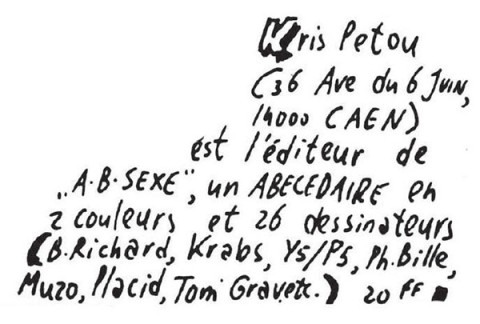 Kris Petou
(36 Ave du 6 JUIN,
14000 CAEN)
est l'éditeur de
„A.B.SEXE", un ABECEDAIRE en
2 couleurs et 26 dessinateurs
(B.Richard, Krabs, Y5/P5, Ph.Bille,
Muzo, Placid, Tom Gravetc.) 20 FF ■